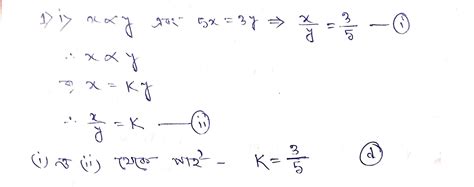 1) i) x ∝ y এবং 5x = 3y ⇒ x/y = 3/5 —— (i)
∴ x ∝ y
বা, x = Ky
∴ x/y = K —— (ii)
(i) ও (ii) থেকে পাই - K = 3/5 (d)